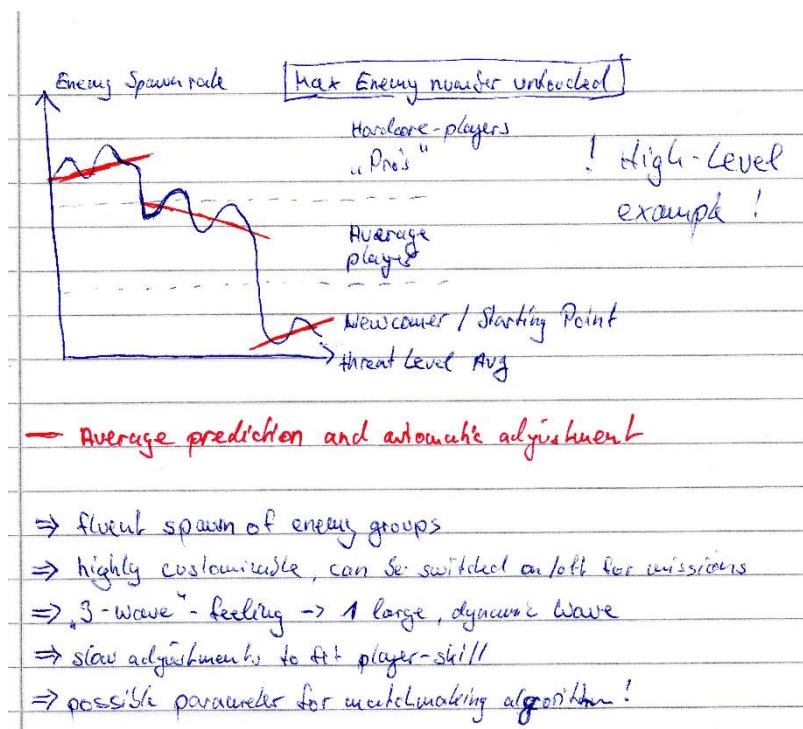 Enemy Spawnrate
Max Enemy number untouched
Hardcore-players
„Pro's"
! High-Level
example !
Average
player
Newcomer / Starting Point
threat Level Avg
— Average prediction and automatic adjustment
⇒ fluent spawn of enemy groups
⇒ highly customizable, can be switched on/off for missions
⇒ „3-wave"-feeling → 1 large, dynamic wave
⇒ slow adjustments to fit player-skill
⇒ possible parameter for matchmaking algorithm!